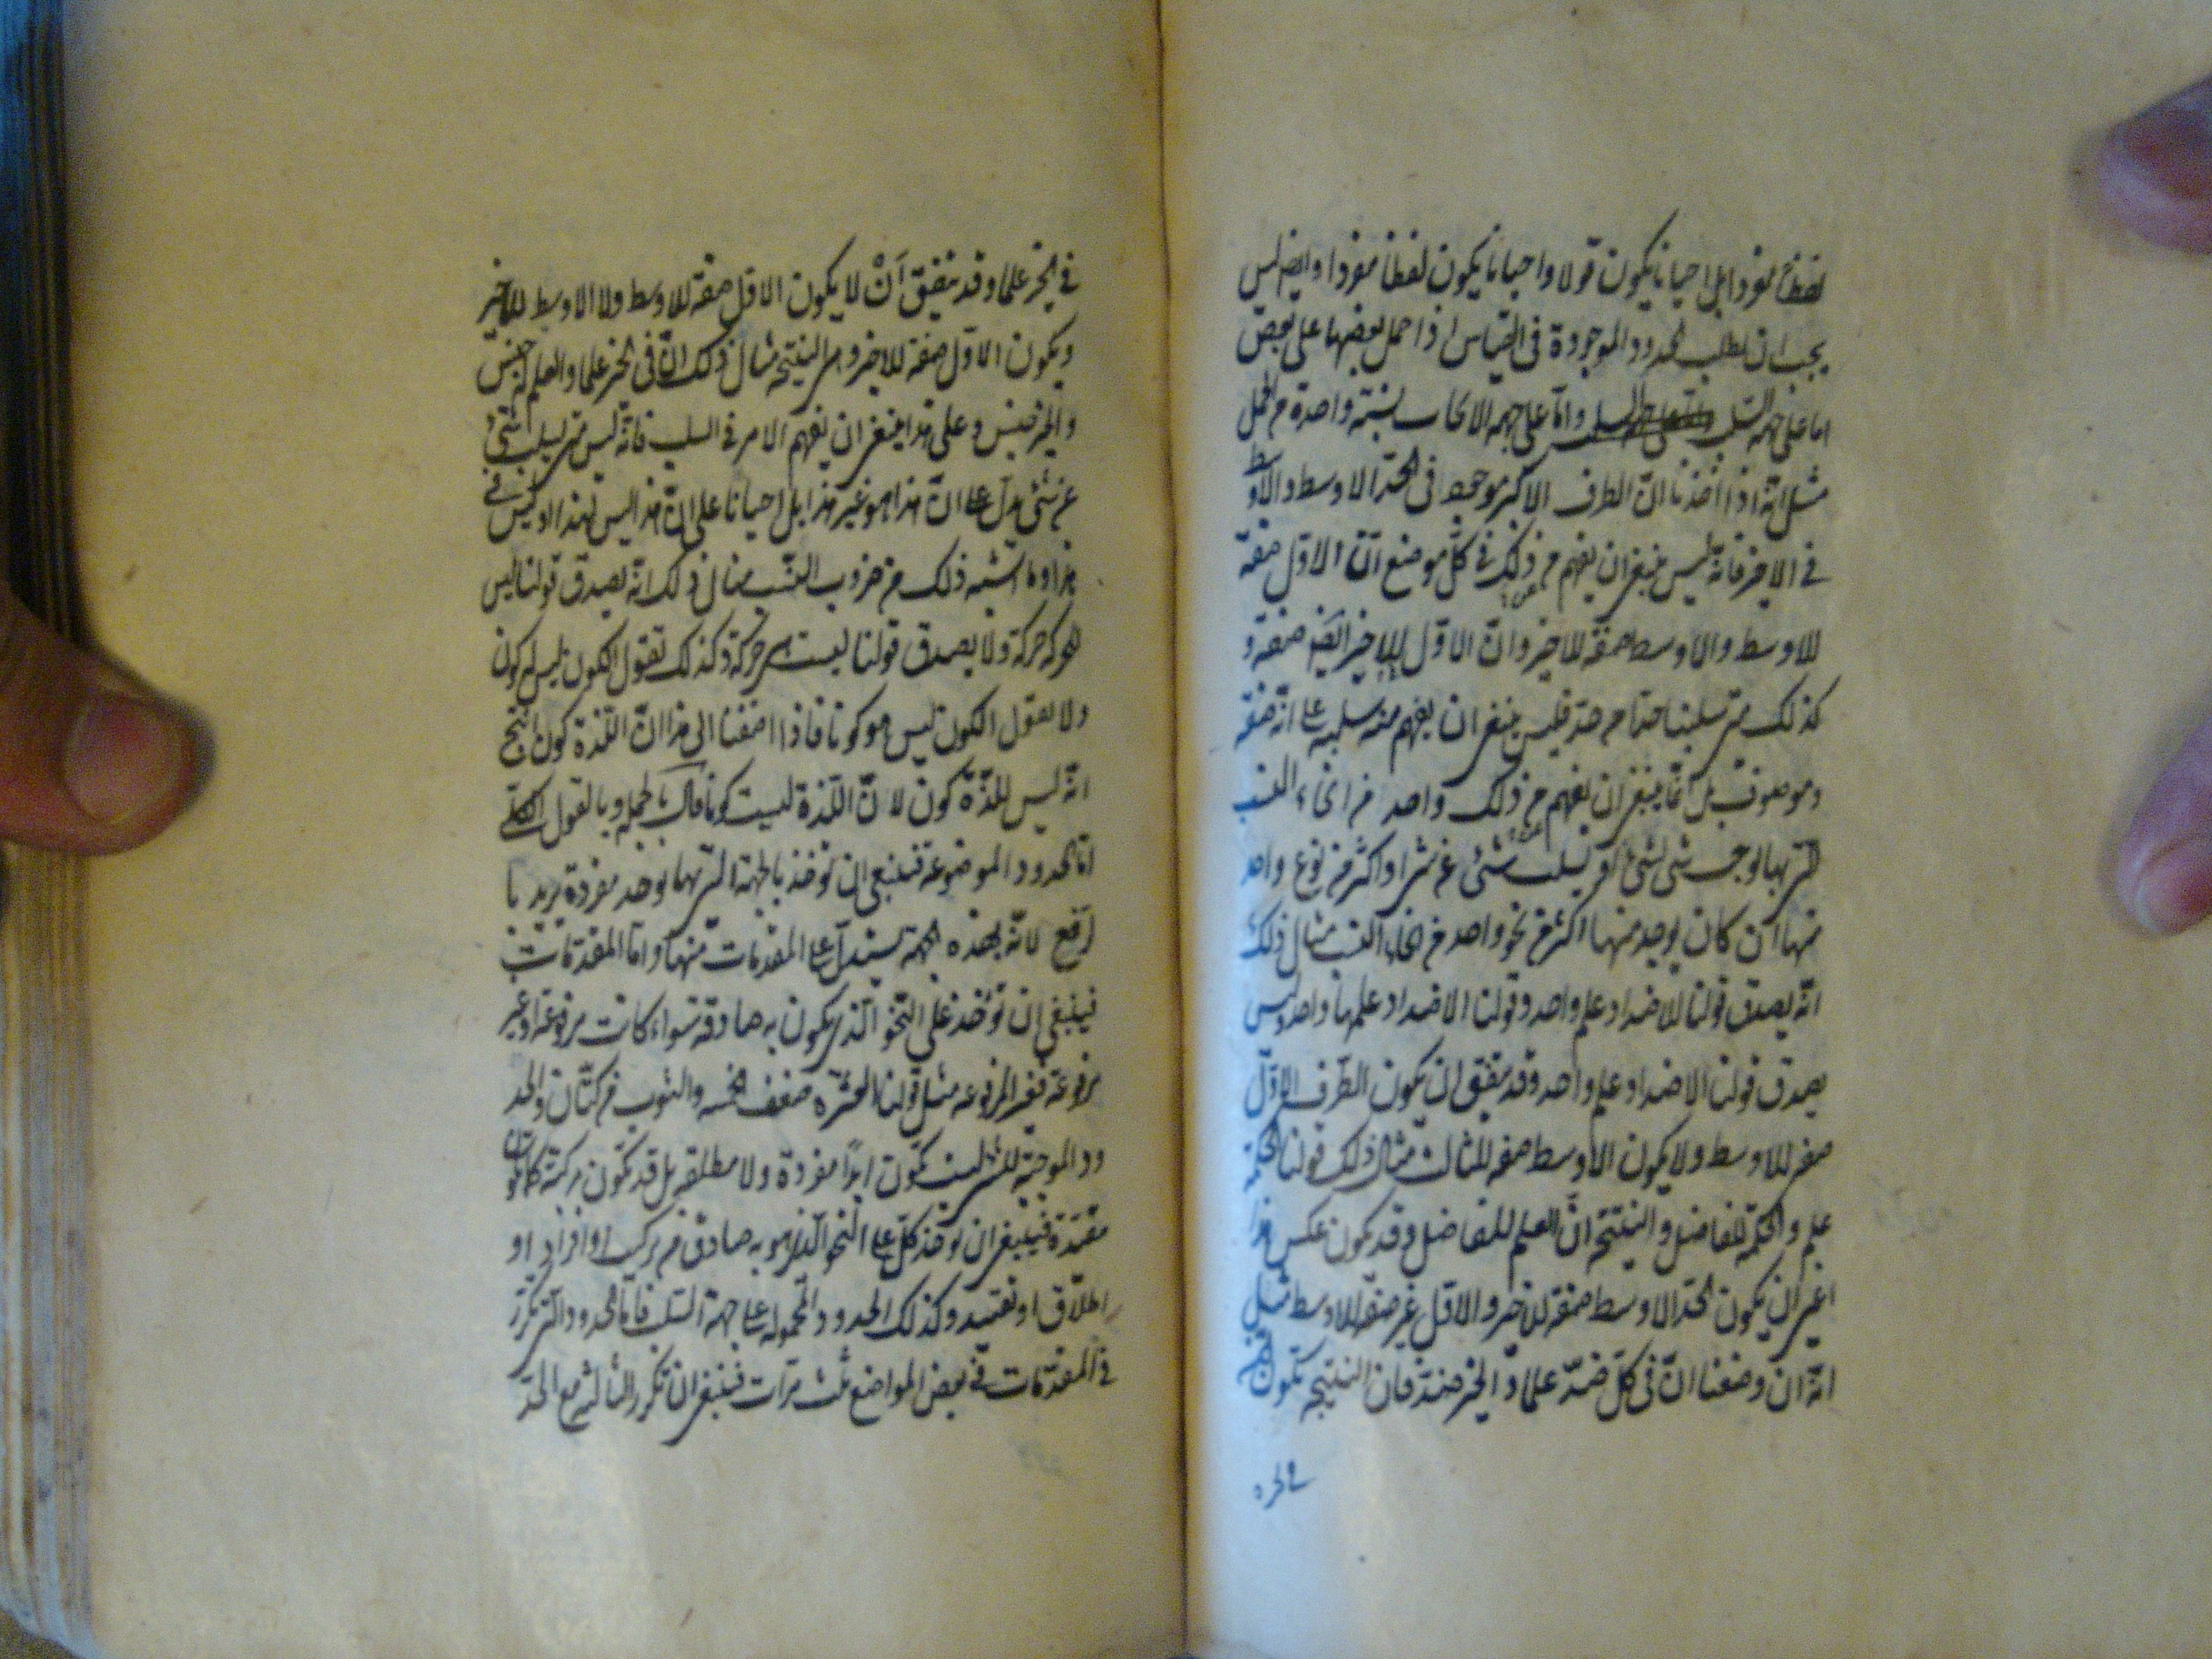 لفظا مفردا بل احيانا يكون قولا واحيانا يكون لفظا مفردا وايضا ليس
يجب ان نطلب الحدود الموجودة فى القياس اذا حمل بعضها على بعض
اما على جهة السلب واما على جهة الايجاب بنسبة واحدة من الحمل
مثل انّه اذا اخذنا انّ الطرف الاكبر موجود فى الحدّ الاوسط والاوسط
فى الاخر فانّه ليس ينبغى ان يفهم من ذلك فى كلّ موضع انّ الاوّل صفة
للاوسط والاوسط صفة للاخير وانّ الاوّل للاخير ايضا صفة و
كذلك متى سلبنا حدّا من حدّ فليس ينبغى ان يفهم منه سلبه على انّه صفة
وموصوف بل انّما ينبغى ان يفهم من ذلك واحد من انحاء النسب
التى بها يوجب شئ لشئ او يسلب شئ عن شئ او اكثر من نوع واحد
منها ان كان يوجد منها اكثر من نحو واحد من انحاء النسب مثال ذلك
انّه يصدق قولنا للاضداد علم واحد وقولنا الاضداد علمها واحد وليس
يصدق قولنا الاضداد علم واحد وقد يتفق ان يكون الطرف الاوّل
صفة للاوسط ولا يكون الاوسط صفة للثالث مثال ذلك قولنا الحكمة
علم والحكمة للفاضل والنتيجة انّ العلم للفاضل وقد يكون عكس هذا
اعنى ان يكون الحدّ الاوسط صفة للاخير والاوّل غير صفة للاوسط مثل
انّه ان وضعنا انّ فى كلّ ضدّ علما والخير ضدّ فان النتيجة تكون انّ
فى الخير
فى الخير علما وقد يتفق انْ لا يكون الاوّل صفة للاوسط ولا الاوسط للاخير
ويكون الاوّل صفة للاخير وهى النتيجة مثال ذلك انّ فى الخير علما والعلم جنس
والخير جنس وعلى هذا ينبغى ان يفهم الامر فى السلب فانّه ليس متى سلب شئ
عن شئ يدلّ على انّ هذا هو غير هذا بل احيانا على انّ هذا ليس لهذا او ليس فى
هذا وما اشبه ذلك من ضروب النسب مثال ذلك انّه يصدق قولنا ليس
للحركة حركة ولا يصدق قولنا ليست هى حركة وكذلك نقول الكون ليس له كون
ولا نقول الكون ليس هو كونا فاذا اضفنا الى هذا انّ اللذة كون انتج
انّه ليس للذّة كون لا انّ اللذة ليست كونا قال وبالجملة وبالقول الكلّى
امّا الحدود الموضوعة فينبغى ان توخذ بالجهة التى بها توخذ مفردة يريد بها
ارفع لانّه بهذه الجهة يستدلّ على المقدّمات منها وامّا المقدّمات
فينبغى ان توخذ على النحو الّذى يكون به صادقة سواء كانت مرفوعة او غير
مرفوعة فغير المرفوعة مثل قولنا العشرة ضعف الخمسة والثوب من كتّان والحد
ود الموجبة للشئ ليست تكون ابدا مفردة ولا مطلقة بل قد تكون مركبة وقد تكون
مقيّدة فينبغى ان توخذ كلّ على النحو الّذى هو به صادق من تركيب او افراد او
اطلاق او تقييد وكذلك الحدود المحمولة على جهة السلب فامّا الحدود التى تكرّر
فى المقدّمات فى بعض المواضع ثلث مرّات فينبغى ان تكرر الثالثة مع الحدّ